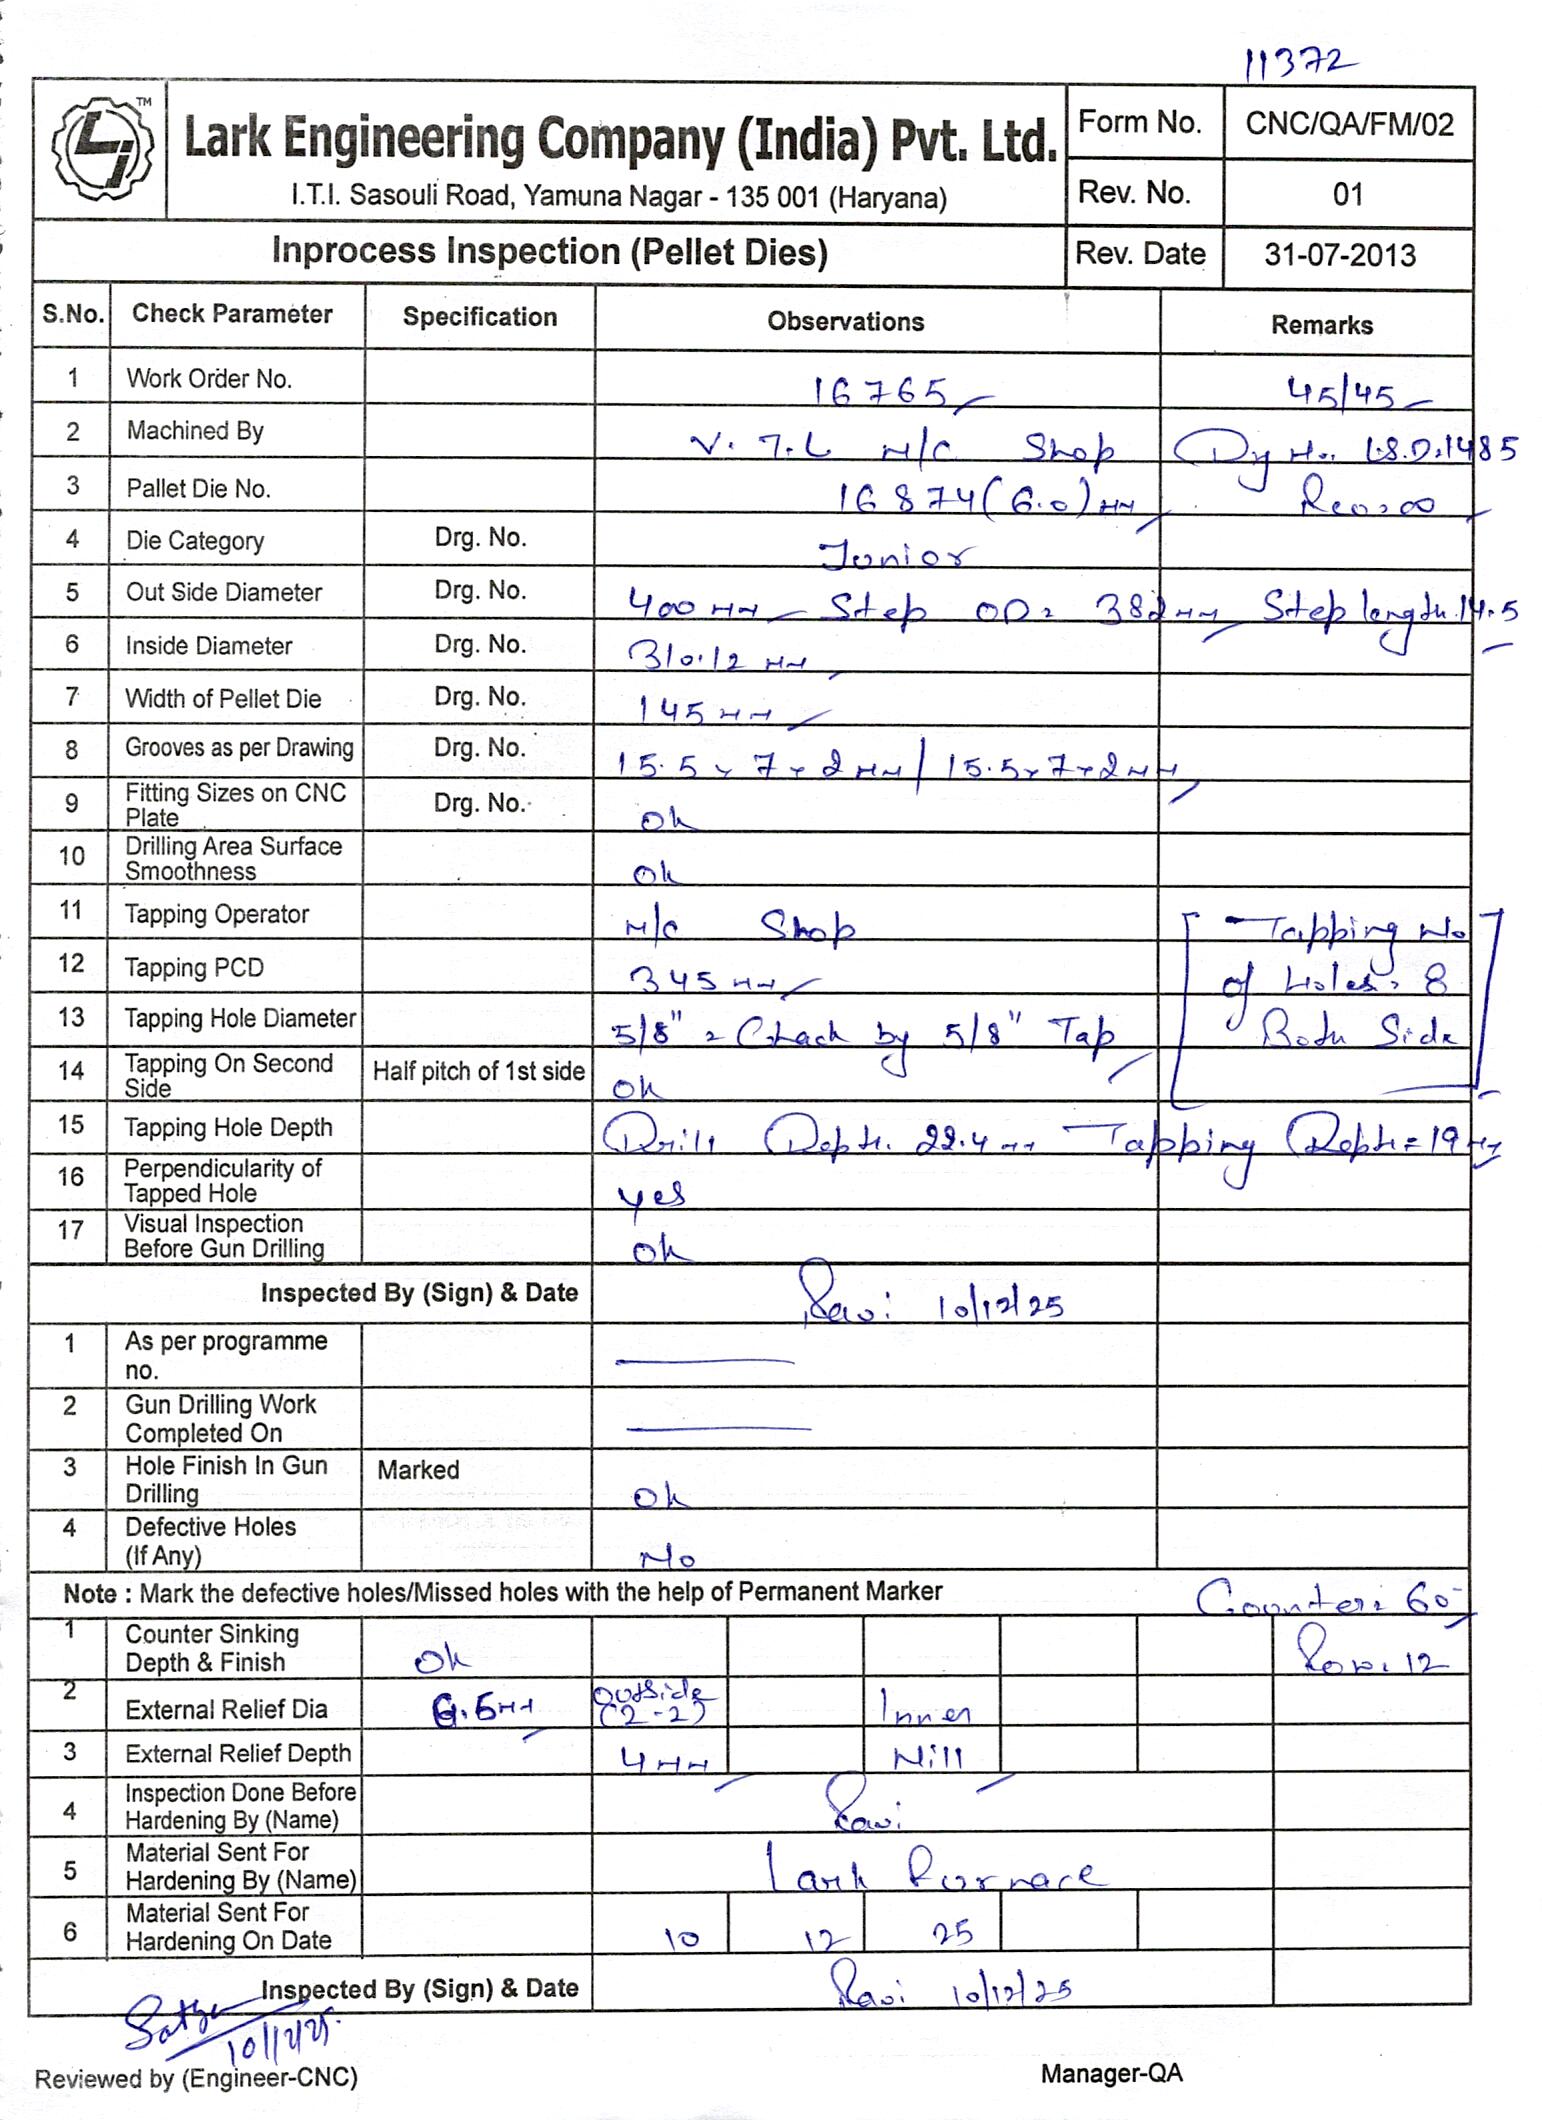 11372
LI TM
Lark Engineering Company (India) Pvt. Ltd.
I.T.I. Sasouli Road, Yamuna Nagar - 135 001 (Haryana)
Form No. CNC/QA/FM/02
Rev. No. 01
Inprocess Inspection (Pellet Dies) Rev. Date 31-07-2013
S.No. Check Parameter Specification Observations Remarks
1 Work Order No. 16765 45/45
2 Machined By V.T.L M/C Shop Drg No. L.S.D.1485
3 Pallet Die No. 16874 (6.0) MM Rev:00
4 Die Category Drg. No. Junior
5 Out Side Diameter Drg. No. 400 MM Step OD: 382 MM Step length: 14.5
6 Inside Diameter Drg. No. 310.12 MM
7 Width of Pellet Die Drg. No. 145 MM
8 Grooves as per Drawing Drg. No. 15.5 x 7 x 2 MM / 15.5 x 7 x 2 MM
9 Fitting Sizes on CNC Plate Drg. No. Ok
10 Drilling Area Surface Smoothness Ok
11 Tapping Operator M/C Shop Tapping No
12 Tapping PCD 345 MM of Holes: 8
13 Tapping Hole Diameter 5/8" = Check by 5/8" Tap Both Side
14 Tapping On Second Side Half pitch of 1st side Ok
15 Tapping Hole Depth Drill Depth: 22.4 MM Tapping Depth = 19 MM
16 Perpendicularity of Tapped Hole yes
17 Visual Inspection Before Gun Drilling Ok
Inspected By (Sign) & Date Ravi 10/12/25
1 As per programme no.
2 Gun Drilling Work Completed On
3 Hole Finish In Gun Drilling Marked Ok
4 Defective Holes (If Any) No
Note : Mark the defective holes/Missed holes with the help of Permanent Marker Counter: 60°
1 Counter Sinking Depth & Finish Ok Row: 12
2 External Relief Dia 6.5 MM Outside (2-2) Inner
3 External Relief Depth 4 MM Nill
4 Inspection Done Before Hardening By (Name) Ravi
5 Material Sent For Hardening By (Name) Lark Furnace
6 Material Sent For Hardening On Date 10 12 25
Inspected By (Sign) & Date Ravi 10/12/25
10/12/25
Reviewed by (Engineer-CNC) Manager-QA